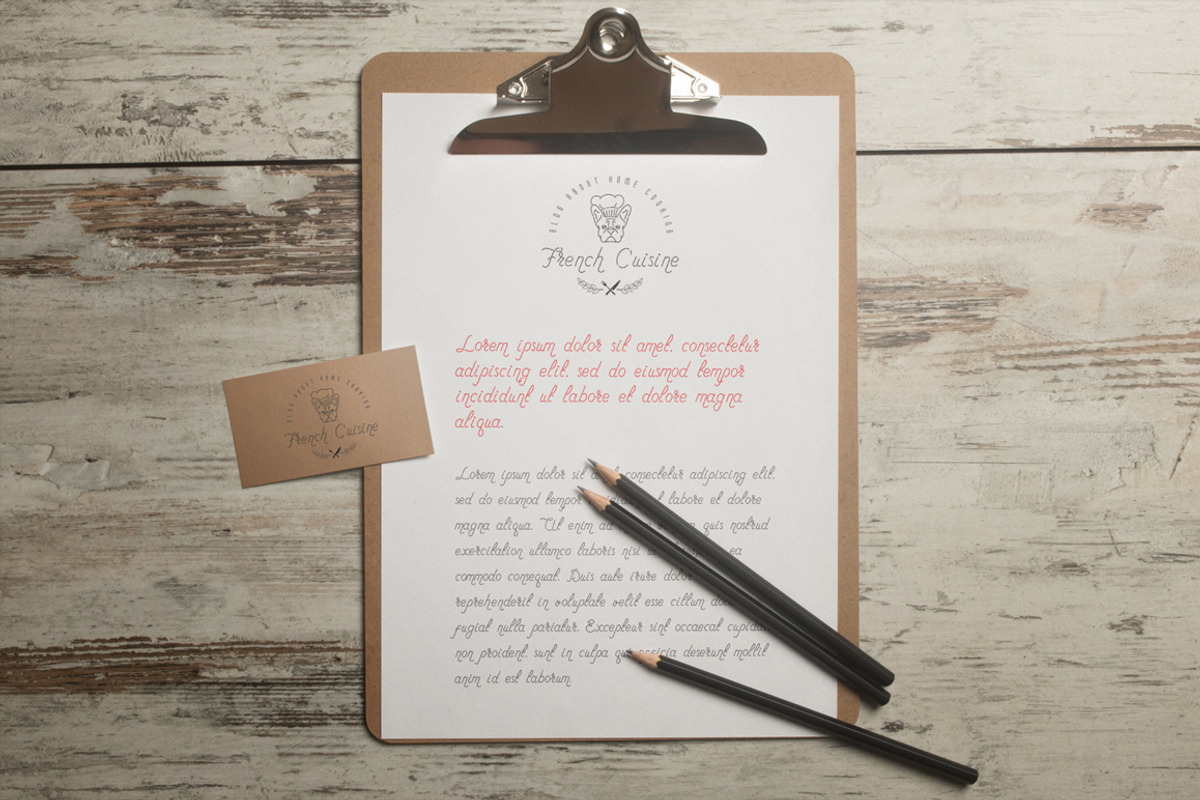 BLOG ABOUT HOME COOKING
French Cuisine
Lorem ipsum dolor sit amet, consectetur
adipiscing elit, sed do eiusmod tempor
incididunt ut labore et dolore magna
aliqua.
BLOG ABOUT HOME COOKING
French Cuisine
Lorem ipsum dolor sit consectetur adipiscing elit,
sed do eiusmod tempor labore et dolore
magna aliqua. Ut enim quis nostrud
exercitation ullamco laboris nisi ea
commodo consequat. Duis aute irure
reprehenderit in voluptate velit esse cillum
fugiat nulla pariatur. Excepteur sint occaecat
non proident, sunt in culpa deserunt mollit
anim id est laborum.